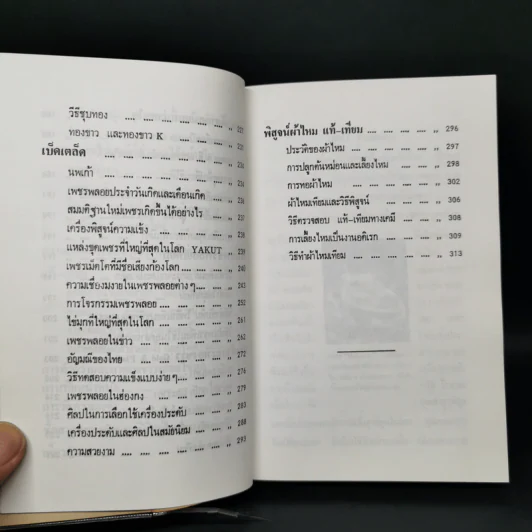 วิธีชุบทอง .... .... .... .... .... ,,
ทองขาว และทองขาว K .... .... .... ,,
เบ็ดเตล็ด .... .... .... .... .... .... ,,
นพเก้า .... .... .... .... .... .... ,,
เพชรพลอยประจำวันเกิดและเดือนเกิด ,,
สมมติฐานใหม่เพชรเกิดขึ้นได้อย่างไร ,,
เครื่องพิสูจน์ความแข็ง .... .... .... ,,
แหล่งขุดเพชรที่ใหญ่ที่สุดในโลก YAKUT ,, 239
เพชรเม็ดโตที่มีชื่อเสียงก้องโลก .... .... ,, 240
ความเชื่องมงายในเพชรพลอยต่าง ๆ .... ,, 245
การโจรกรรมเพชรพลอย .... .... .... ,, 252
ไข่มุกที่ใหญ่ที่สุดในโลก .... .... .... ,, 261
เพชรพลอยในข่าว .... .... .... .... ,,
อัญมณีของไทย .... .... .... .... ,, 272
วิธีทดสอบความแข็งแบบง่าย ๆ .... .... ,,
เพชรพลอยในฮ่องกง .... .... .... ,, 279
ศิลปในการเลือกใช้เครื่องประดับ .... .... ,, 283
เครื่องประดับและศิลปในสมัยนิยม .... ,, 288
ความสวยงาม .... .... .... .... .... ,, 293
พิสูจน์ผ้าไหม แท้-เทียม .... .... .... ,, 296
ประวัติของผ้าไหม .... .... .... ,, 297
การปลูกต้นหม่อนและเลี้ยงไหม .... .... ,, 298
การทอผ้าไหม .... .... .... .... ,, 302
ผ้าไหมเทียมและวิธีพิสูจน์ .... .... ,, 306
วิธีตรวจสอบ แท้-เทียมทางเคมี .... ,, 308
การเลี้ยงไหมเป็นงานอดิเรก .... .... ,, 309
วิธีทำผ้าไหมเทียม .... .... .... ,, 313